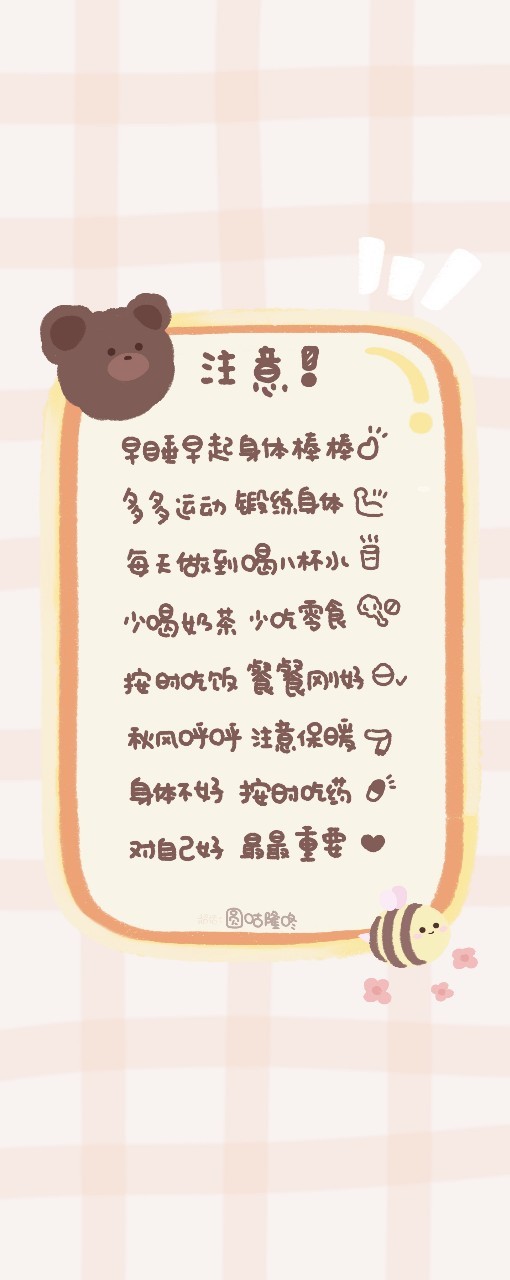 注意!
早睡早起 身体棒棒
多多运动 锻练身体
每天做到喝八杯水
少喝奶茶 少吃零食
按时吃饭 餐餐刚好
秋风呼呼 注意保暖
身体不好 按时吃药
对自己好 最最重要
圆咕隆咚